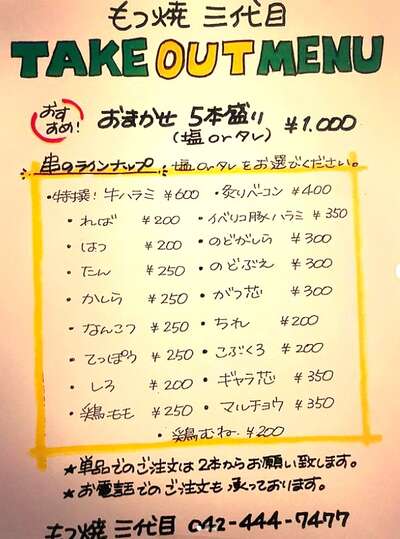 もつ焼 三代目
TAKE OUT MENU
おすすめ!
おまかせ 5本盛り
(塩 or タレ) ¥1.000
串のラインナップ 塩 or タレをお選びください。
・特撰! 牛ハラミ ¥600 ・炙りベーコン ¥400
・ればー ¥200 ・イベリコ豚ハラミ ¥350
・はつ ¥200 ・のどがしら ¥300
・たん ¥250 ・のどぶえ ¥300
・かしら ¥250 ・がつ芯 ¥300
・なんこつ ¥250 ・ちれ ¥200
・てっぽう ¥250 ・こぶくろ ¥200
・しろ ¥200 ・ギャラ芯 ¥350
・鶏モモ ¥250 ・マルチョウ ¥350
・鶏むね ¥200
★単品でのご注文は2本からお願い致します。
★お電話でのご注文も承っております。
もつ焼 三代目 042-444-7477